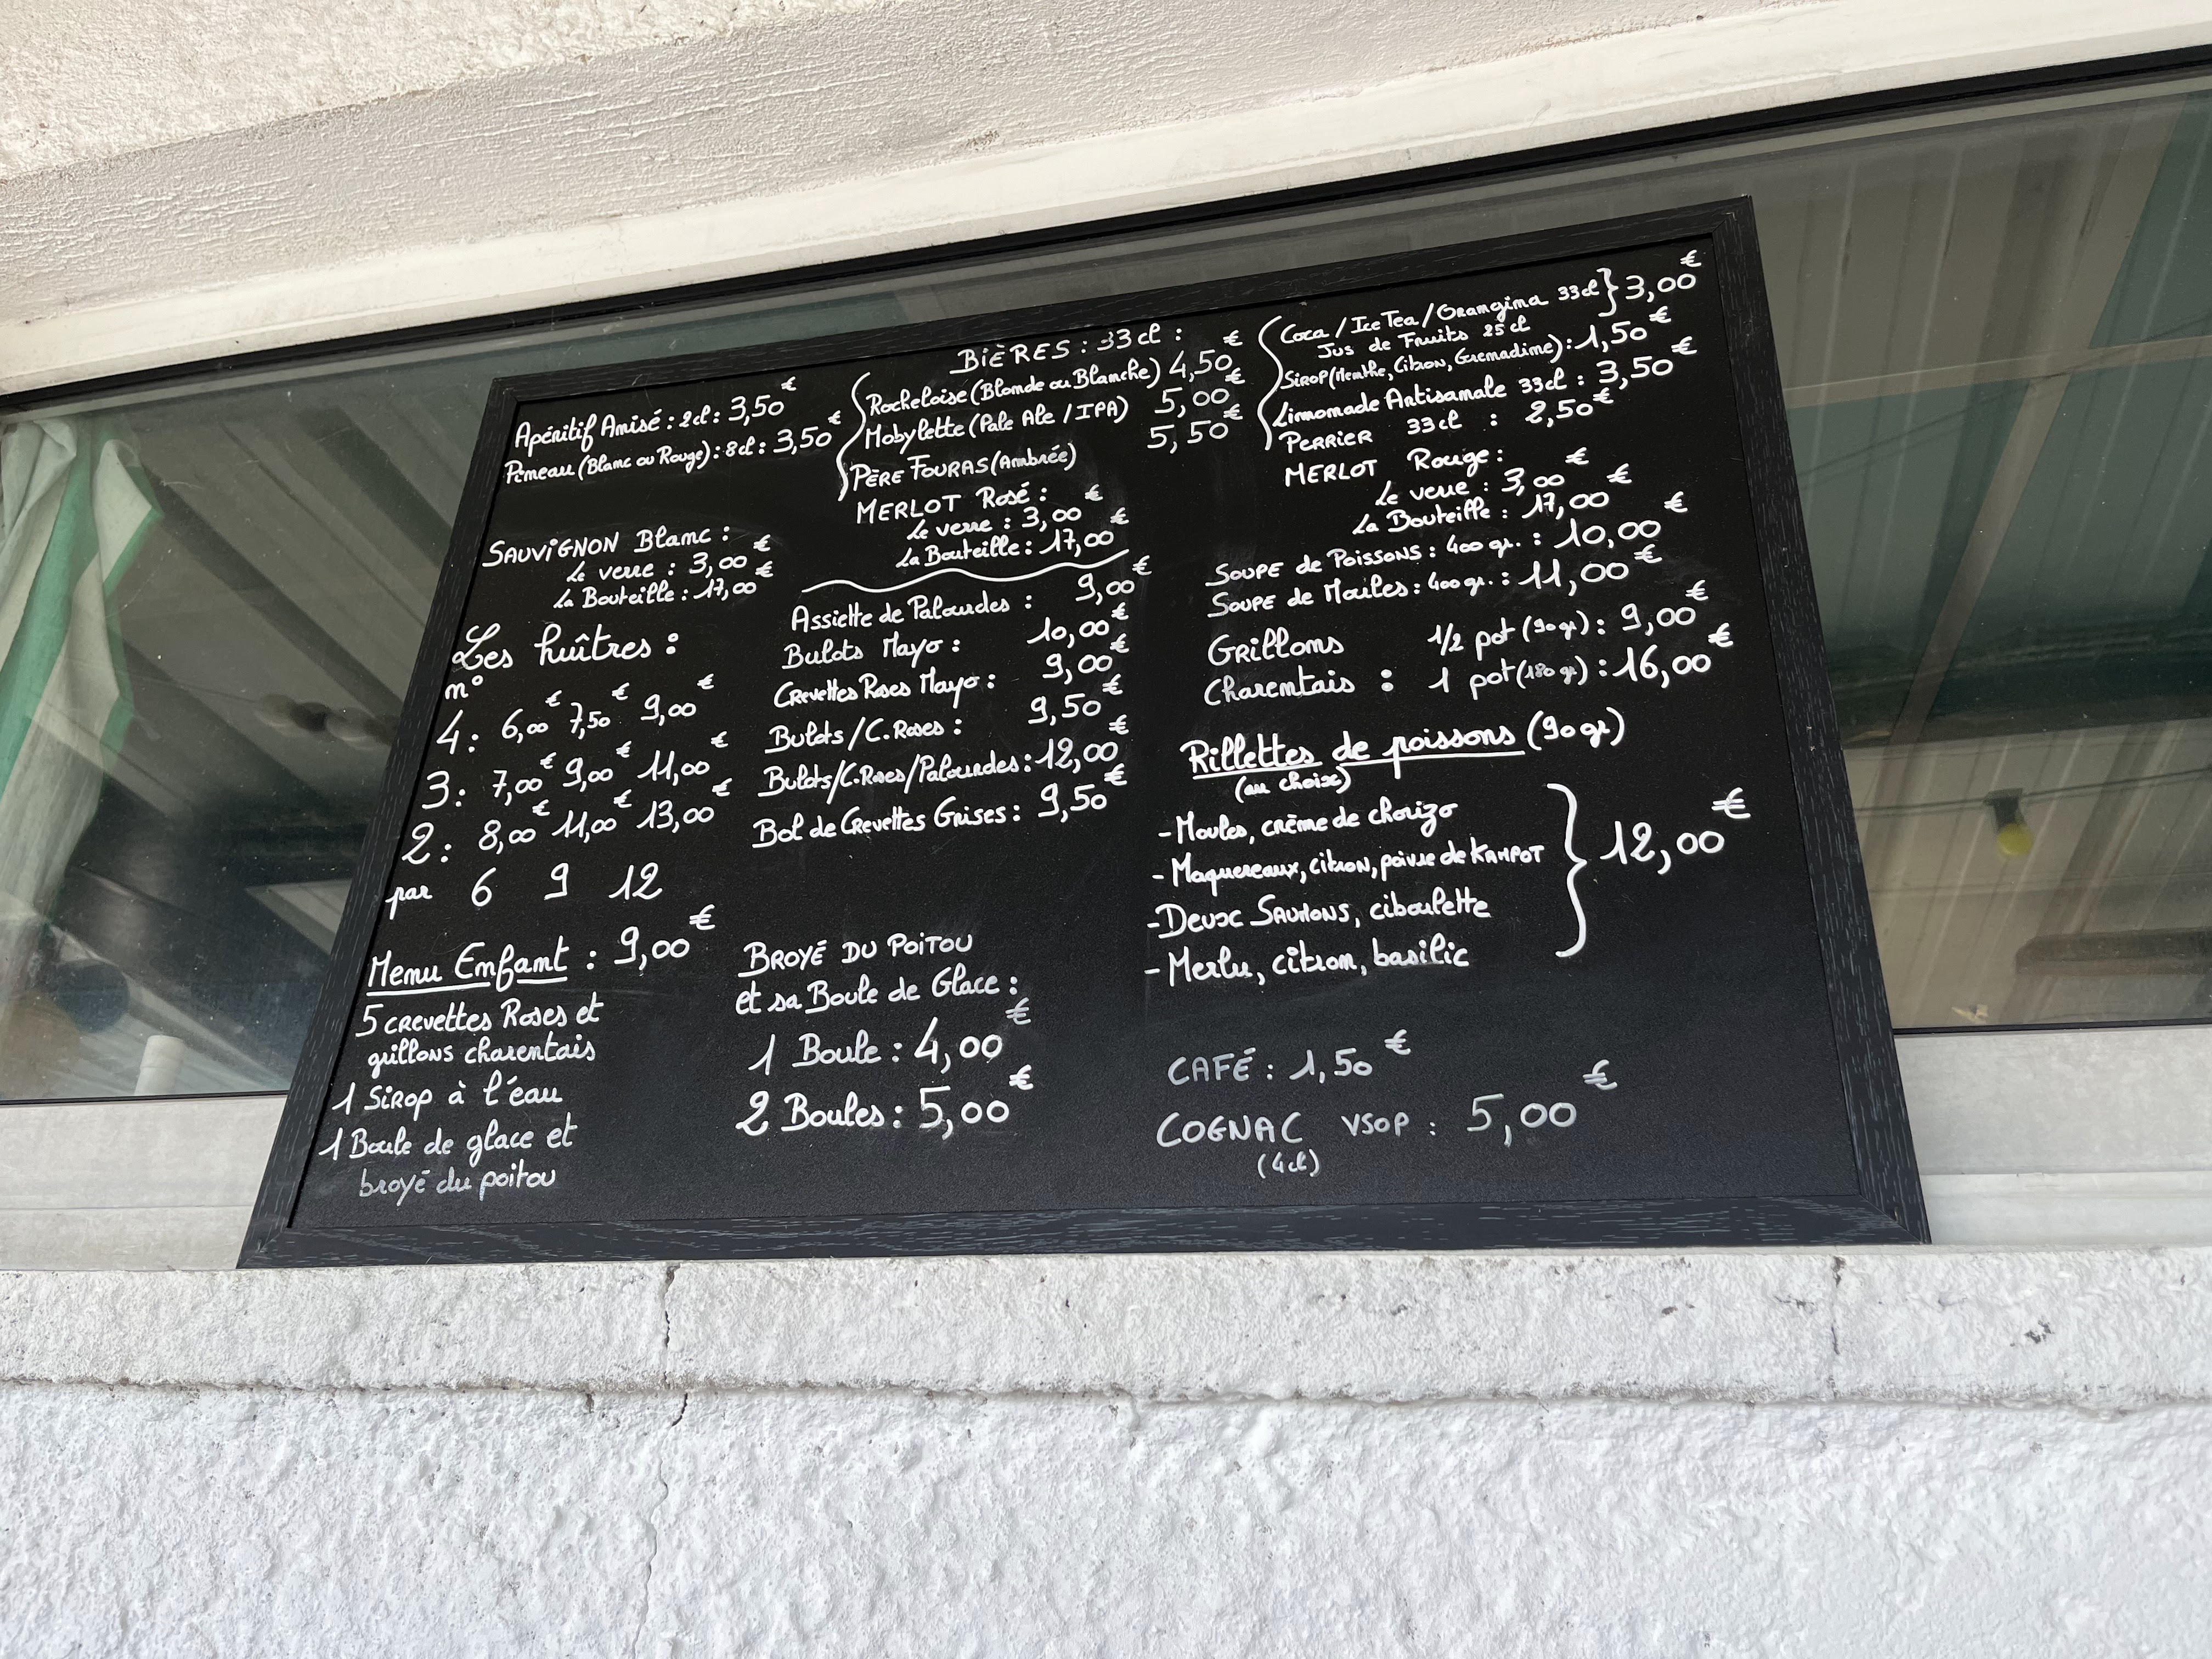 Apéritif Anisé : 2cl : 3,50€
Pineau (Blanc ou Rouge) : 8cl : 3,50€
SAUVIGNON Blanc :
Le verre : 3,00€
La Bouteille : 17,00€
Les huîtres :
n°
4 : 6,00€ 7,50€ 9,00€
3 : 7,00€ 9,00€ 11,00€
2 : 8,00€ 11,00€ 13,00€
par 6 9 12
Menu Enfant : 9,00€
5 crevettes Roses et
grillons charentais
1 Sirop à l'eau
1 Boule de glace et
broyé du poitou
BIÈRES : 33cl :
Rocheloise (Blonde ou Blanche) 4,50€
Mobylette (Pale Ale / IPA) 5,00€
PÈRE FOURAS (Ambrée) 5,50€
MERLOT Rosé :
Le verre : 3,00€
La Bouteille : 17,00€
Assiette de Palourdes : 9,00€
Bulots Mayo : 10,00€
Crevettes Roses Mayo : 9,00€
Bulots / C. Roses : 9,50€
Bulots/C.Roses/Palourdes : 12,00€
Bol de Crevettes Grises : 9,50€
BROYÉ DU POITOU
et sa Boule de Glace :
1 Boule : 4,00€
2 Boules : 5,00€
Coca / Ice Tea / Orangina 33cl } 3,00€
Jus de Fruits 25cl
Sirop (Menthe, Citron, Grenadine) : 1,50€
Limonade Artisanale 33cl : 3,50€
PERRIER 33cl : 2,50€
MERLOT Rouge :
Le verre : 3,00€
La Bouteille : 17,00€
Soupe de Poissons : 400gr. : 10,00€
Soupe de Moules : 400gr. : 11,00€
Grillons 1/2 pot (90gr) : 9,00€
Charentais : 1 pot (180gr) : 16,00€
Rillettes de poissons (90gr)
(au choix)
- Moules, crème de chorizo
- Maquereaux, citron, poivre de KAMPOT } 12,00€
- Deux Saumons, ciboulette
- Merlu, citron, basilic
CAFÉ : 1,50€
COGNAC VSOP : 5,00€
(4cl)